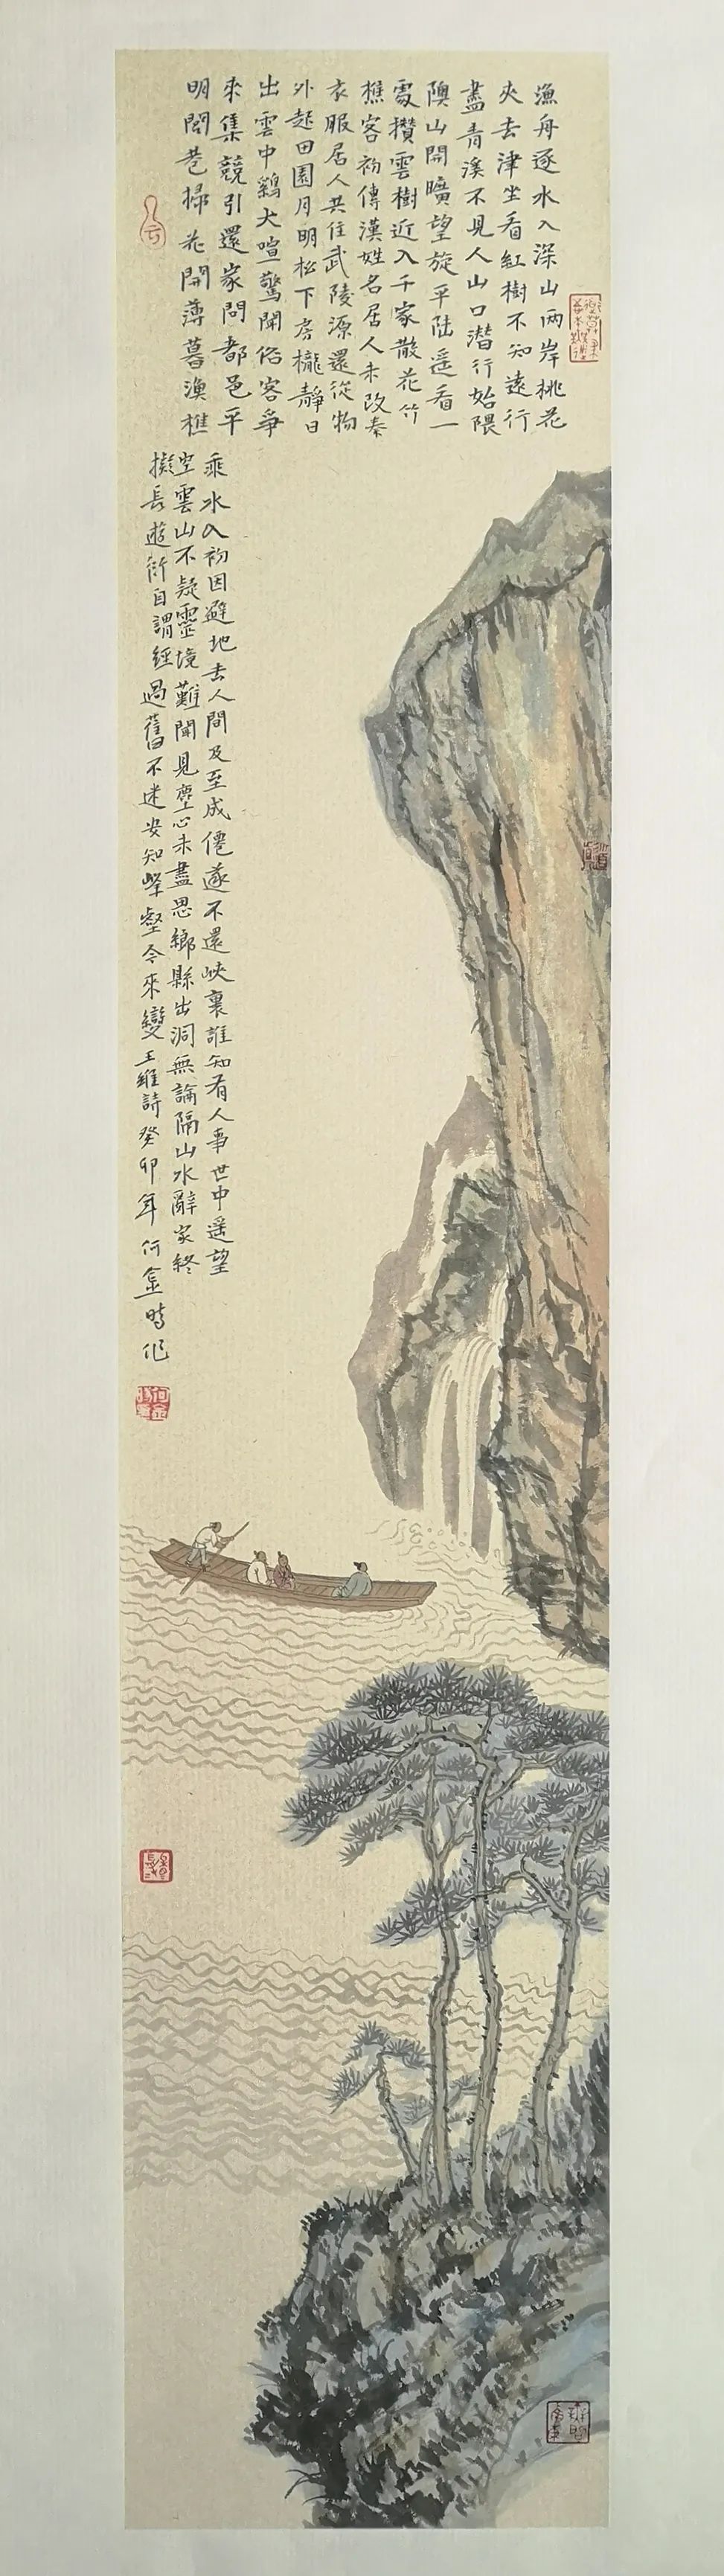 漁舟逐水入深山兩岸桃花
夾去津坐看紅樹不知遠行
盡青溪不見人山口潛行始隈
隩山開曠望旋平陸遥看一
處攢雲樹近入千家散花竹
樵客初傳漢姓名居人未改秦
衣服居人共住武陵源還從物
外起田園月明松下房櫳靜日
出雲中鷄犬喧驚聞俗客爭
來集競引還家問都邑平
明閭巷掃花開薄暮漁樵
乘水入初因避地去人間及至成僊遂不還峽裏誰知有人事世中遥望
空雲山不疑靈境難聞見塵心未盡思鄉縣出洞無論隔山水辭家終
擬長遊衍自謂經過舊不迷安知峯壑今來變王維詩癸卯年何金時作